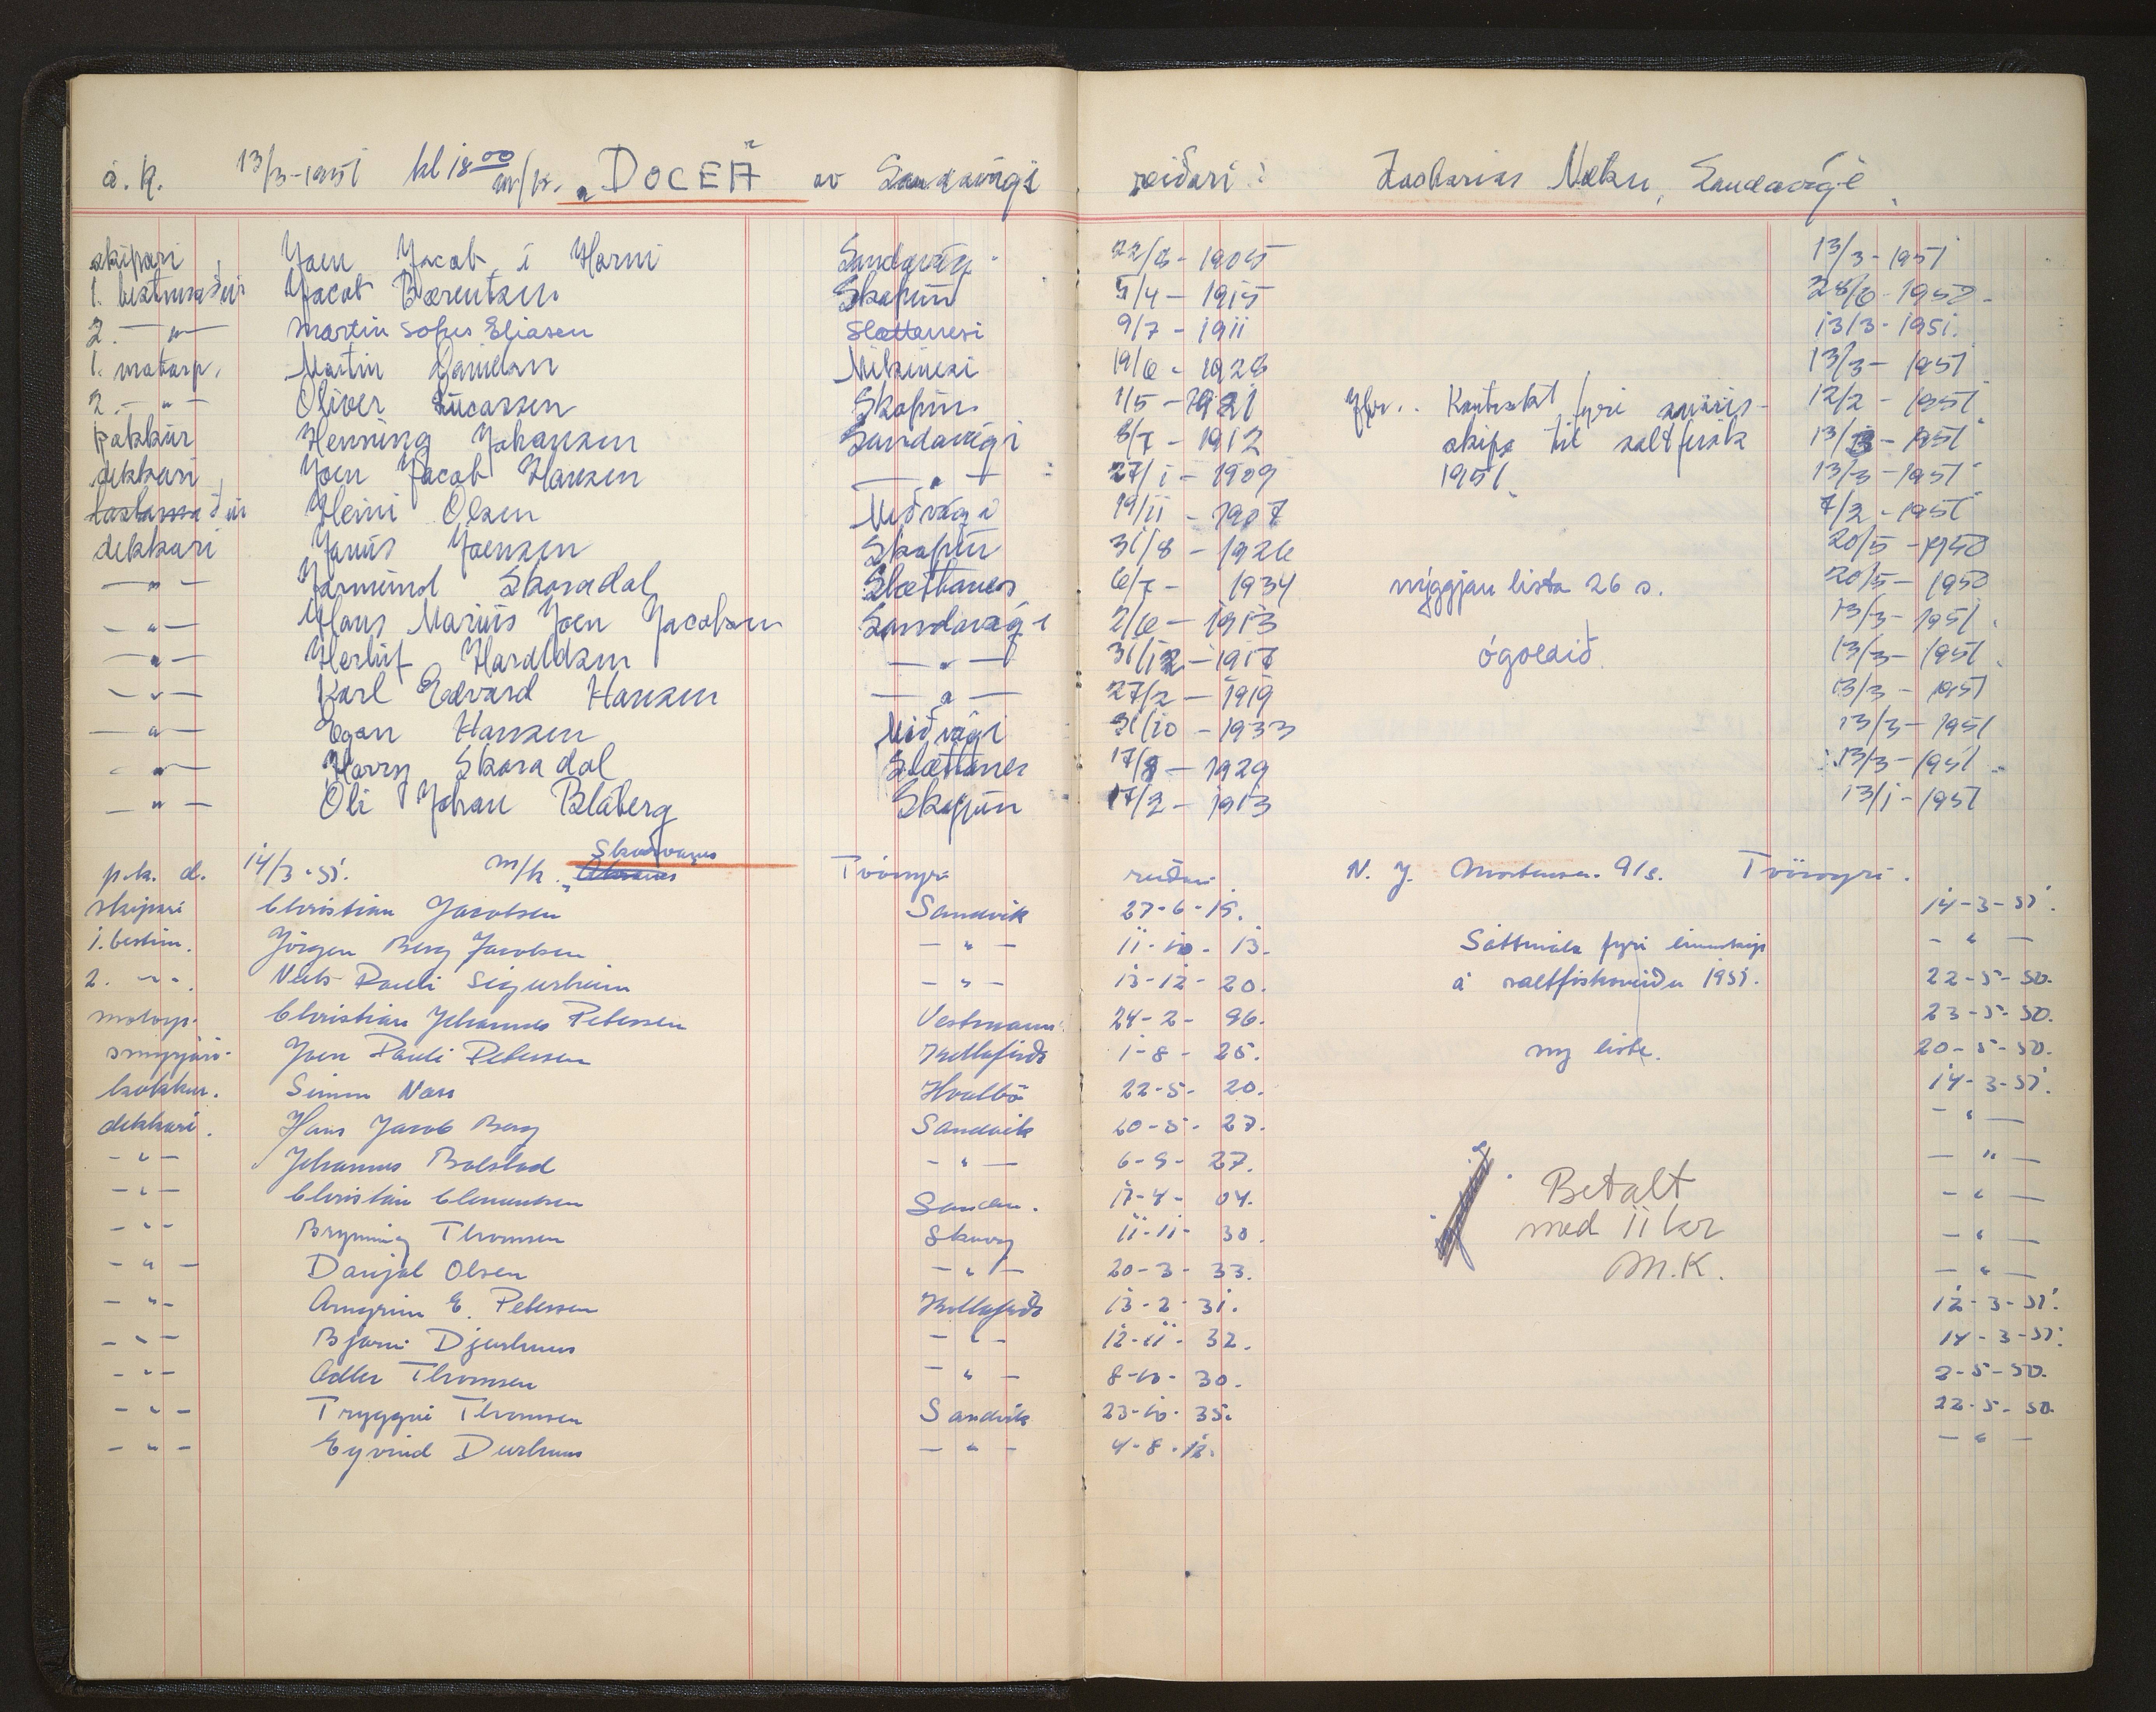 á. k. 13/3-1951 kl 18 00 m/k. "DOCEA" av Sandavági reiðari: Zacharias Sandavági
skipari Joen Jacob í Horni Sandavág 22/8-1905 13/3-1951
1. bestmaður Jacob Bærentsen Skopun 5/4-1915 28/6-1950
2. -"- Martin Sofus Eliasen Slættanesi 9/7-1911 13/3-1951.
1. motorp. Martin Danielsen Mikinesi 19/6-1928 13/3-1951
2. -"- Oliver Lucassen Skopun 1/5-1921 Yvir. Kontrakt fyri snøris- 12/2-1951
kokkur Henning Johansen Sandavági 8/7-1912 skipa til saltfisk 13/3-1951
dekkari Joen Jacob Hansen -"- 27/1-1909 1951 13/3-1951
Heini Olsen Miðvági 19/11-1907 7/2-1951
dekkari Janus Joensen Skopun 31/8-1926 20/5-1950
-"- Jørmund Skoradal Slættanes 6/7-1934 nýggjan lista 26 s. 20/5-1950
-"- Hans Marius Joen Jacobsen Sandavági 2/6-1913 13/3-1951
-"- Herluf Haraldsen -"- 31/12-1917 ógoldið 13/3-1951
-"- Karl Edvard Hansen -"- 27/2-1919 13/3-1951
-"- Egon Hansen Miðvági 31/10-1933 13/3-1951
-"- Harry Skoradal Slættanes 17/8-1929 13/3-1951
-"- Óli Johan Bláberg Skopun 17/2-1913 13/1-1951
p.k. d. 14/3-51. m/k. Skarvanes Tvöroyri reiðari N. J. Mortensen A/s. Tvöroyri.
skipari Christian Jacobsen Sandvik 27-6-15. 14-3-51.
1. bestm. Jörgen Berg Jacobsen -"- 11-10-13. Sáttmála fyri línuskip -"-
2. -"-. Niels Pauli Sigurheim -"- 13-12-20. á saltfiskaveiðu 1951. 22-5-50.
motorp. Christian Johannes Petersen Vestmanna 24-2-96. 23-5-50.
smyrjari Joen Pauli Petersen Kollafirði 1-8-25. ny liste. 20-5-50.
kokkur. Simun Næs Hvalbö 22-5-20. 14-3-51.
dekkari. Hans Jacob Berg Sandvik 20-5-27. -"-
-"- Johannus Bolstad -"- 6-9-27. -"-
-"- Christian Clementsen Sandvik 17-4-04. Betalt -"-
-"- Brynning Thomsen Skuvoy 11-11-30. med 11 kr -"-
-"- Danjal Olsen -"- 20-3-33. M.K. -"-
-"- Arngrim E. Petersen Kollafirði 13-2-31. 12-3-51.
-"- Bjarni Djurhuus -"- 12-11-32. 14-3-51.
-"- Adler Thomsen -"- 8-10-30. 2-5-50.
-"- Tryggvi Thomsen Sandvik 23-10-35. 22-5-50.
-"- Eyvind Durhuus -"- 4-8-12. -"-